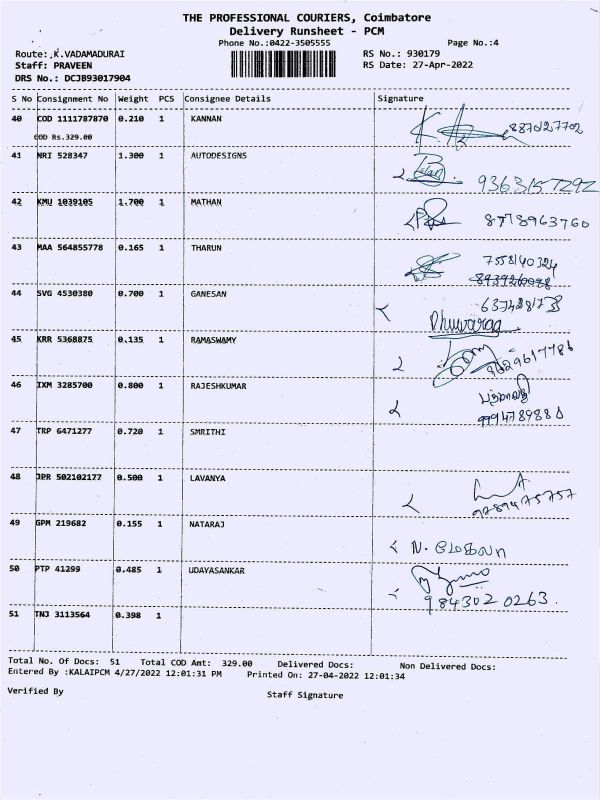 THE PROFESSIONAL COURIERS, Coimbatore
Delivery Runsheet - PCM
Phone No.:0422-3505555 Page No.:4
Route: K.VADAMADURAI RS No.: 930179
Staff: PRAVEEN RS Date: 27-Apr-2022
DRS No.: DCJB93017904
S No Consignment No Weight PCS Consignee Details Signature
40 COD 1111787870 0.210 1 KANNAN 8870127702
COD Rs.329.00
41 NRI 528347 1.300 1 AUTODESIGNS 9363157292
42 KMU 1039105 1.700 1 MATHAN 8778963760
43 MAA 564855778 0.165 1 THARUN 7558140324
44 SVG 4530380 0.700 1 GANESAN
Dhuvaraga
45 KRR 5368875 0.135 1 RAMASWAMY 9629617786
46 IXM 3285700 0.800 1 RAJESHKUMAR
9994789880
47 TRP 6471277 0.720 1 SMRITHI
48 JPR 502102177 0.500 1 LAVANYA
9789475757
49 GPM 219682 0.155 1 NATARAJ N. மேகலா
50 PTP 41299 0.485 1 UDAYASANKAR
9843020263.
51 TNJ 3113564 0.398 1
Total No. Of Docs: 51 Total COD Amt: 329.00 Delivered Docs: Non Delivered Docs:
Entered By :KALAIPCM 4/27/2022 12:01:31 PM Printed On: 27-04-2022 12:01:34
Verified By Staff Signature